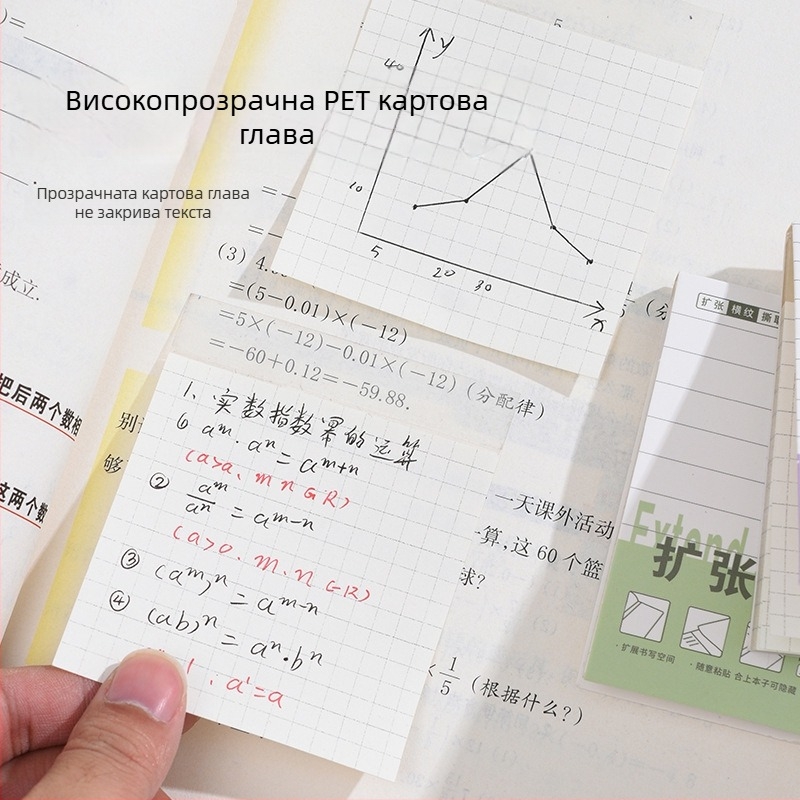 Високопрозрачна PET картова
глава
Прозрачната картова глава
не закрива текста
y
40
10
5
20
30
x
5
成立.
把后两个数相
这两个数
(3) 4.
=(5−0.01)×(−12)
=5×(−12)−0.01×(−12)(分配律)
=−60+0.12=−59.88.
别
够
1、实数指数幂的运算
① aᵐ·aⁿ=aᵐ⁺ⁿ
(a>a、m n∈R)
② aᵐ/aⁿ=aᵐ⁻ⁿ
(a>0、m、n∈R)
③ (aᵐ)ⁿ=aᵐ⁻ⁿ
④ (ab)ⁿ=aⁿ·bⁿ
a¹=a
一天课外活动
算,这 60 个篮
球?
1/5 (根据什么?)
扩张 横纹 撕取
Extend
扩张
·扩展书写空间
·随意粘贴
合上本子可隐藏